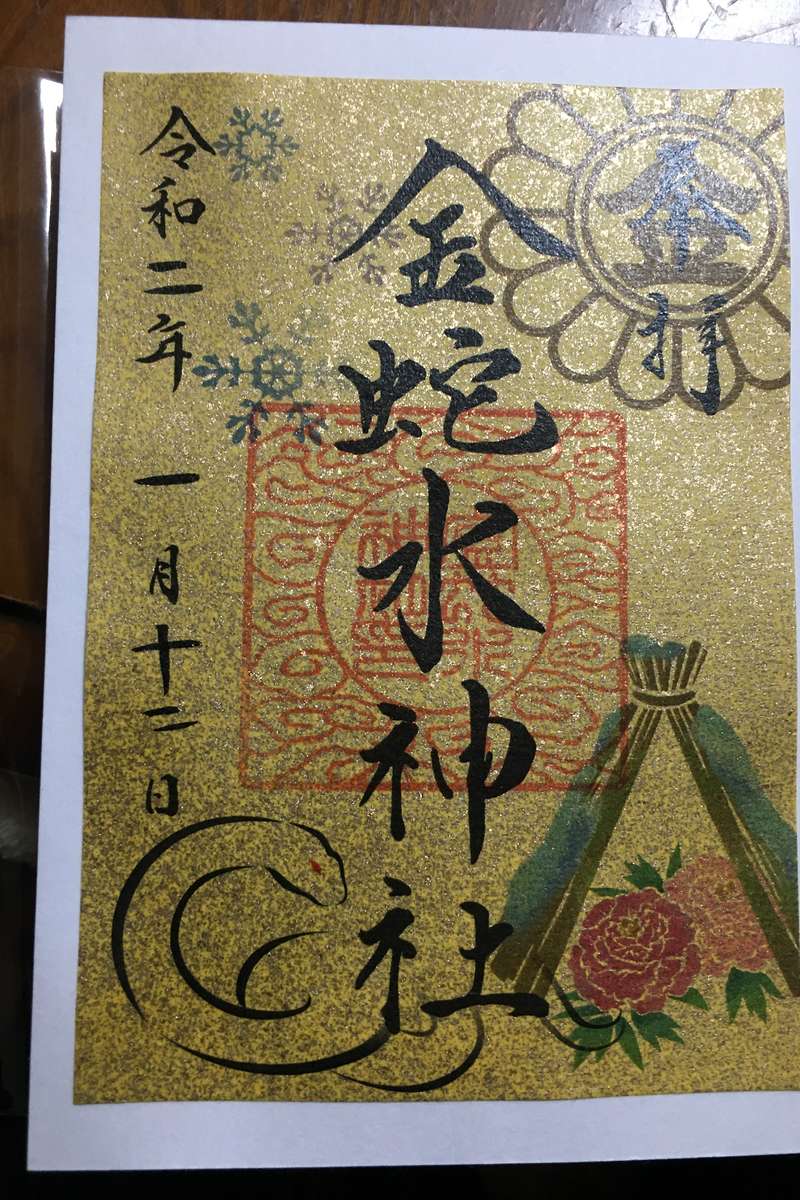 奉拝
金蛇水神社
令和二年 一月十二日